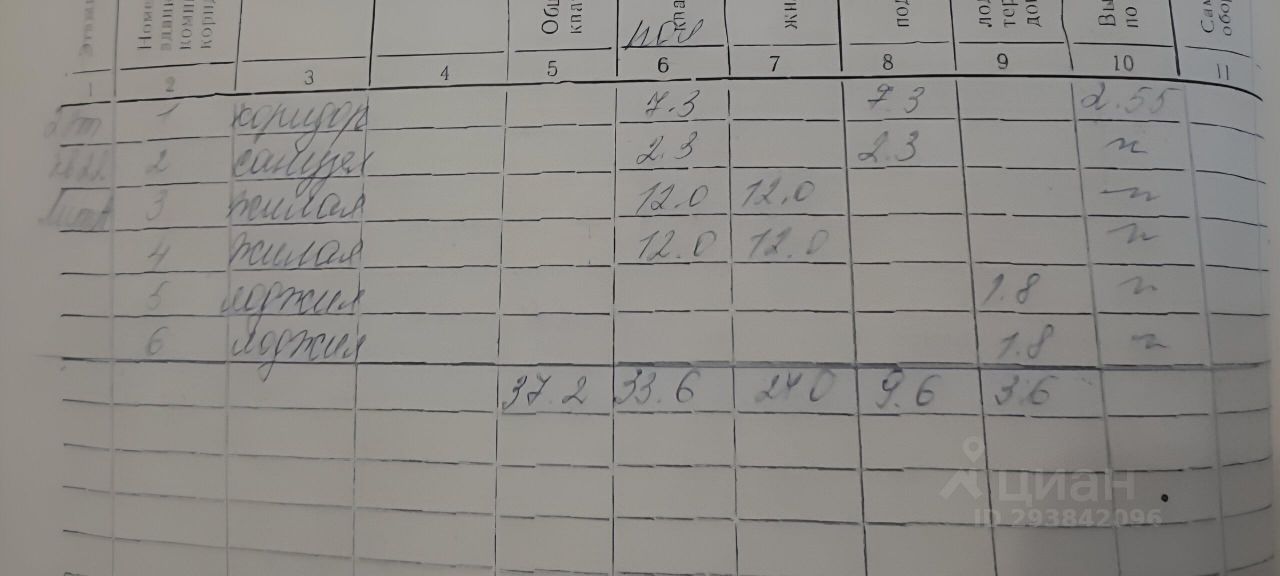 Этажи Номе здани комн корид Общ ква ква жи под лод тер до Вы по Сам обор
1 2 3 4 5 6 7 8 9 10 11
1 коридор 7.3 7.3 2.55
2 санузел 2.3 2.3 "
3 жилая 12.0 12.0 "
4 жилая 12.0 12.0 "
5 лоджия 1.8 "
6 лоджия 1.8 "
37.2 33.6 24 0 9.6 3.6
циан
ID 293842096